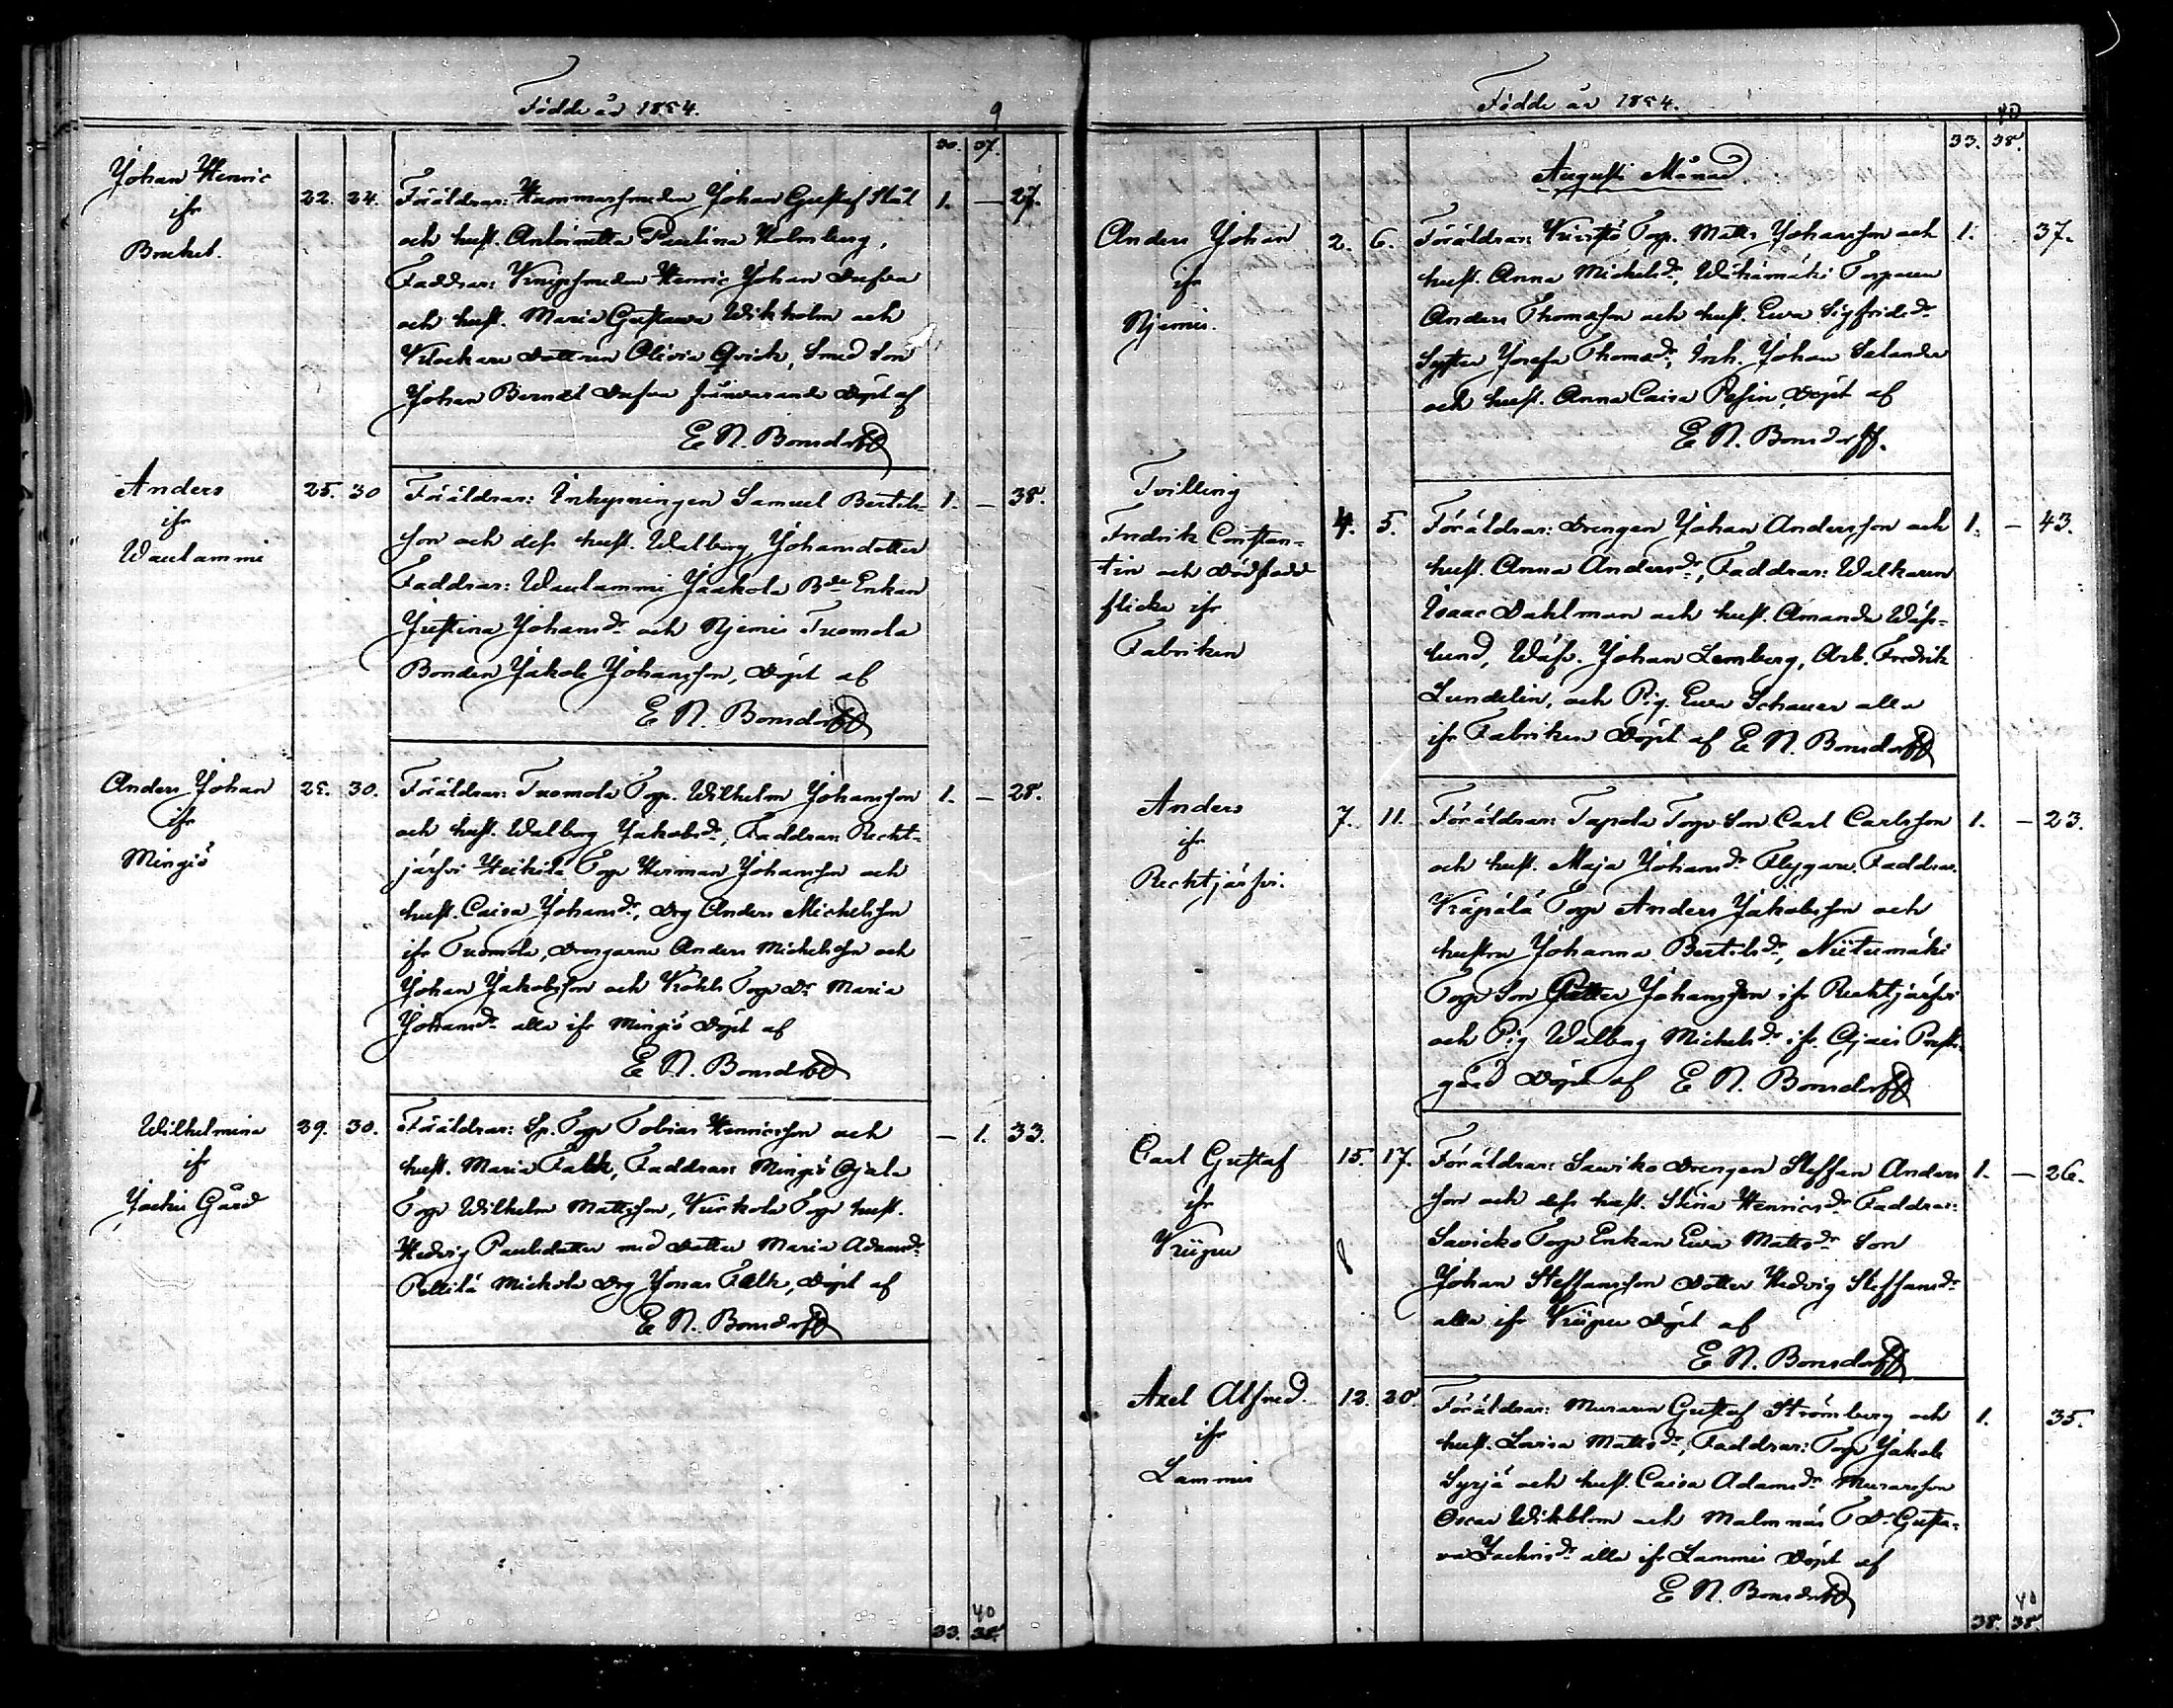 Födde år 1854.
9
30. 37.
Johan Henric
ifr
Bruket.
22. 24.
Föräldrar: Hammarsmeden Johan Gustaf Stål
och hust. Antoinetta Paulina Holmberg,
Faddrar: Knipsmeden Henric Johan Dufva
och hust. Maria Gustava Wikholm och
Klockare Dottren Olivia Qvick, Smed Son
Johan Berndt Dufva frånvarande Döpt af
E N. Bonsdorff
1. — 27.
Anders
ifr
Waulammi
25. 30
Föräldrar: Inhysningen Samuel Bertils-
son och dess hust. Walborg Johansdotter
Faddrar: Waulammi Jaakola Bde Enkan
Justina Johansdr och Njemis Tuomola
Bonden Jakob Johansson, Döpt af
E N. Bonsdorff
1. — 38.
Anders Johan
ifr
Mingiö
25. 30.
Föräldrar: Tuomola Torp. Wilhelm Johansson
och hust. Walborg Jakobsdr, Faddrar: Recht-
järfvi Heikilä Torp Herman Johansson och
hust. Caisa Johansdr, Drg Anders Michelsson
ifr Tuomola, Drengarne Anders Michelsson och
Johan Jakobsson och Torp Dr Maria
Johansdr alla ifr Mingiö Döpt af
E N. Bonsdorff
1. — 28.
Wilhelmina
ifr
Gård
29. 30.
Föräldrar: Sp. Torp Tobias Henricsson och
hust. Maria Falk, Faddrar: Mingiö Ojala
Torp Wilhelm Mattsson, Torp hust.
Hedvig Paulsdotter med Dotter Maria Adamsdr
Pellilä Mickola Drg Jonas Falk, Döpt af
E N. Bonsdorff
— 1. 33.
40
33. 38.
Födde år 1854.
40
33. 38.
Augusti Månad
Anders Johan
ifr
Njemis.
2. 6.
Föräldrar: Torp. Matts Johansson och
hust. Anna Michelsdr, Wähämäki Torparen
Anders Thomasson och hust. Eva Sigfridsdr
Syster Josefa Thomasdr, Inh. Johan Salander
och hust. Anna Caisa Döpt af
E N. Bonsdorff.
1. 37.
Tvilling
Fredrik Constan-
tin och Dödfödd
flicka ifr
Fabriken
4. 5.
Föräldrar: Drengen Johan Andersson och
hust. Anna Andersdr, Faddrar: Walkaren
Isaac Dahlman och hust. Amanda Wäs-
lund, Wäfv. Johan Lemberg, Arb. Fredrik
Lundelin, och Pig. Eva Schauer alla
ifr Fabriken Döpt af E N. Bonsdorff
1. — 43.
Anders
ifr
Rechtjärfvi.
7. 11.
Föräldrar: Tapola Torp Son Carl Carlsson
och hust. Maja Johansdr Flygare. Faddrar.
Käpälä Torp Anders Jakobsson och
hustru Johanna Bertilsdr, Niitumäki
Torp Son Petter Johansson ifr Rechtjärfvi
och Pig Walborg Michelsdr ifr. Ojais Prest-
gård Döpt af E N. Bonsdorff
1. — 23.
Carl Gustaf
ifr
Kiipu
15. 17.
Föräldrar: Saviko Drengen Steffan Anders
son och dess hust. Stina Henricsdr Faddrar:
Savicko Torp Enkan Eva Mattsdr Son
Johan Steffansson Dotter Hedvig Steffansdr
alla ifr Kiipu Döpt af
E N. Bonsdorff
1. — 26.
Axel Alfred
ifr
Lammis
12. 20.
Föräldrar: Muraren Gustaf Strömberg och
hust. Lovisa Mattsdr, Faddrar: Torp Jakob
Syrjä och hust. Caisa Adamsdr Murarson
Oscar Wikblom och Malmnäs T Dr Gusta-
va Zachrisdr alla ifr Lammis Döpt af
E N. Bonsdorff
1. 35.
40
38. 38.